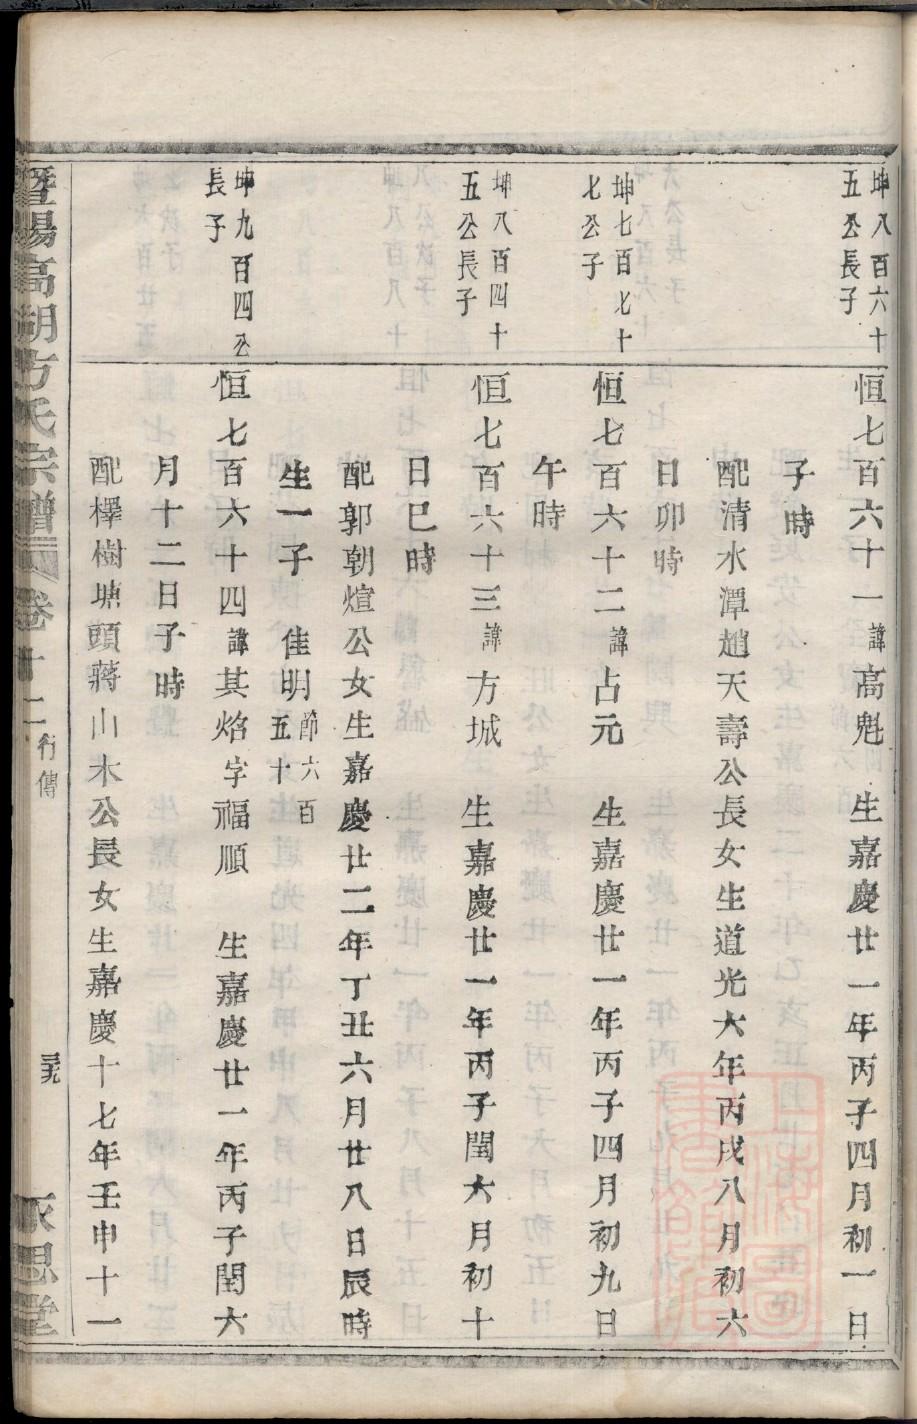 坤八百六十
五公長子
恒七百六十一諱高魁　生嘉慶廿一年丙子四月初一日
子時
配清水潭趙天壽公長女生道光六年丙戌八月初六
日卯時
坤七百七十
七公子
恒七百六十二諱占元　生嘉慶廿一年丙子四月初九日
午時
坤八百四十
五公長子
恒七百六十三諱方城　生嘉慶廿一年丙子閏六月初十
日巳時
配郭朝煊公女生嘉慶廿二年丁丑六月廿八日辰時
生一子　佳明節六百五十
坤九百四公
長子
恒七百六十四諱其焰字福順　生嘉慶廿一年丙子閏六
月十二日子時
配檡樹塘頭蔣山木公長女生嘉慶十七年壬申十一
暨陽高湖方氏宗譜　卷十二　行傳　永思堂